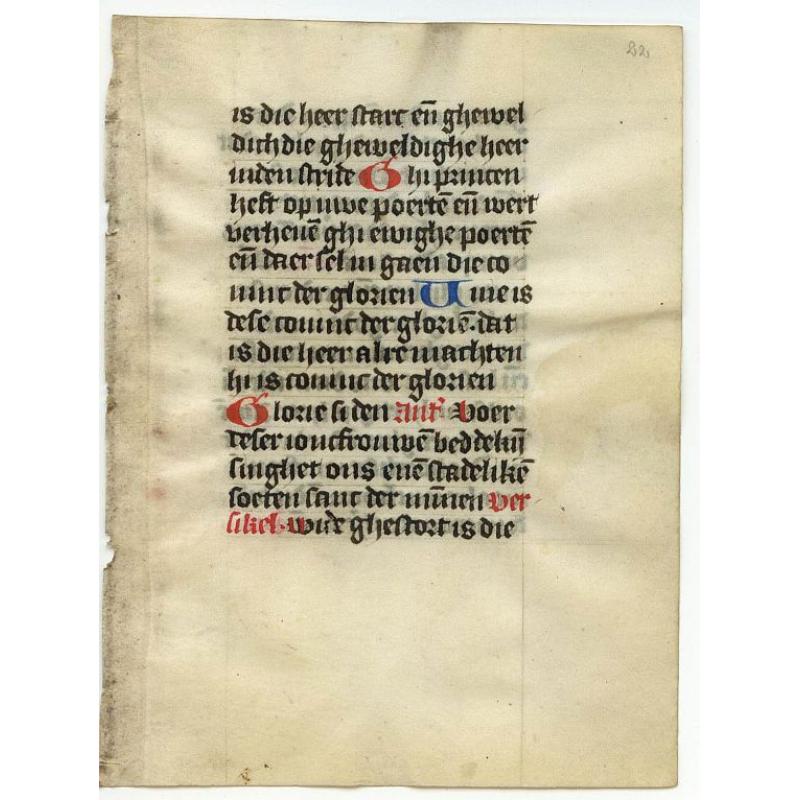 22
is die heer starc en̄ ghewel
dich die gheweldighe heer
inden stride Ghi princen
heft op uwe poertē en̄ wert
verheuē ghi ewighe poertē
en̄ daer sel in gaen die co
ninc der glorien Wie is
dese coninc der gloriē. dat
is die heer alre machten
hi is coninc der glorien
Glorie si den Ant' Voer
deser ioncfrouwē beddekijn
singhet ons enē stadelikē
soeten sanc der minnen Ver
sikel. wide ghestort is die